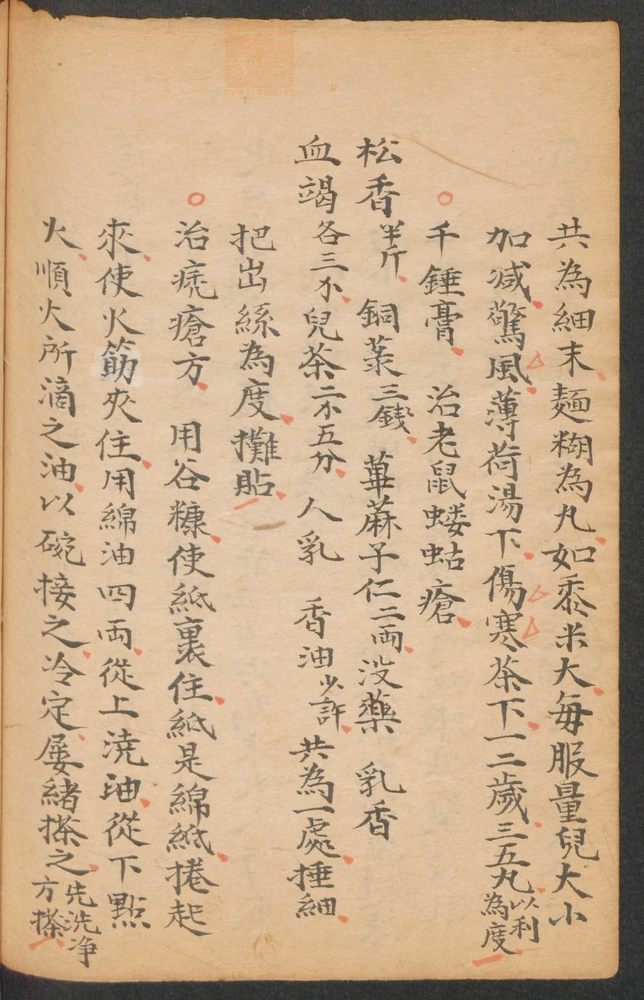 共為細末麵糊為丸如黍米大每服量兒大小
加減驚風薄荷湯下傷寒茶下一二歲三五丸以利為度
千錘膏 治老鼠蝼蛄瘡
松香半斤 銅菉三錢 萆蔴子仁二兩 没藥 乳香
血竭各三 兒茶二 五分 人乳 香油少許 共為一處捶細
把出絲為度攤貼
治痣瘡方 用谷糠使紙裹住紙是綿紙捲起
來使火筯夾住用綿油四兩從上澆油從下點
火順火所滴之油以碗接之冷定屡緒搽之先洗净方搽